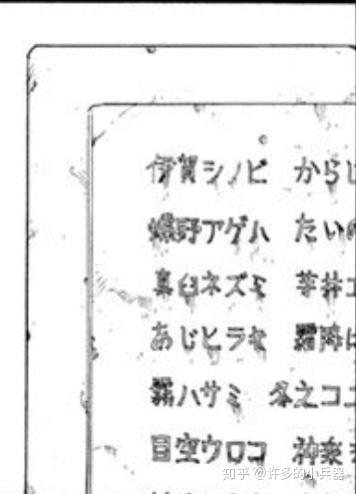 伊賀シノビ から
蝶野アゲハ たい
真臼ネズミ 芋井
あじヒラキ 霧降
霧ハサミ 冬之コ
目空ウロコ 神楽
知乎 @许多的小兵器